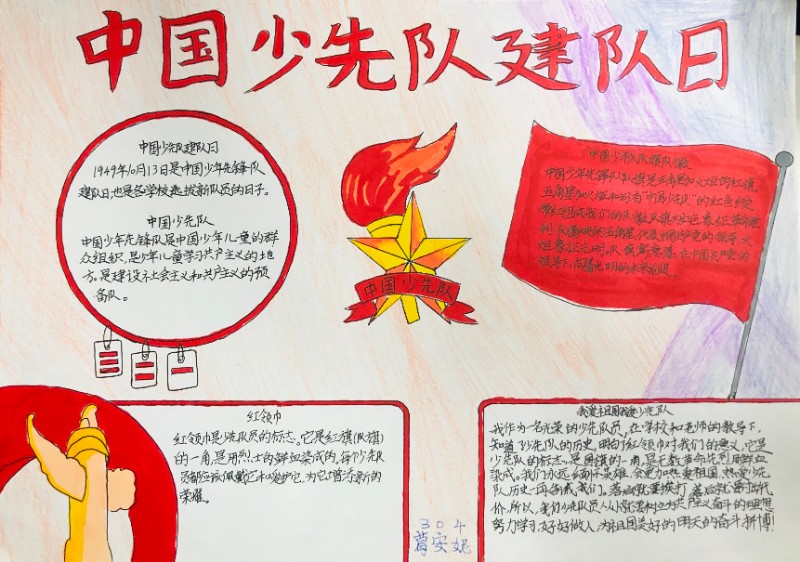 中国少先队建队日
中国少先队建队日
1949年10月13日是中国少年先锋队
建队日,也是各学校选拔新队员的日子。
中国少先队
中国少年先锋队是中国少年儿童的群
众组织,是少年儿童学习共产主义的地
方。是建设社会主义和共产主义的预
备队。
三 二 一
中国少先队
中国少先队队旗队徽
中国少年先锋队队旗是五角星加火炬的红旗
五角星加火炬和写有"中国少先队"的红色绶
红领巾
红领巾是少先队员的标志。它是红旗(队旗)
的一角,是用烈士的鲜血染成的,每个少先队
员都应该佩戴它和爱护它,为它增添新的
荣耀。
我爱祖国我爱少先队
我作为一名光荣的少先队员,在学校和老师的教导下,
知道了少先队的历史,明白了红领巾对我们的意义,它是
少先队的标志,是国旗的一角,是无数革命先烈用鲜血
染成。我们永远缅怀英雄,会更加热爱祖国,热爱少先
队,历史一再告诫我们,落后就要挨打,落后就要付出代
价。所以,我们少先队员从小就要树立为共产主义奋斗的理想
努力学习,好好做人,为祖国美好的明天的奋斗拼搏!
304
葛安妮